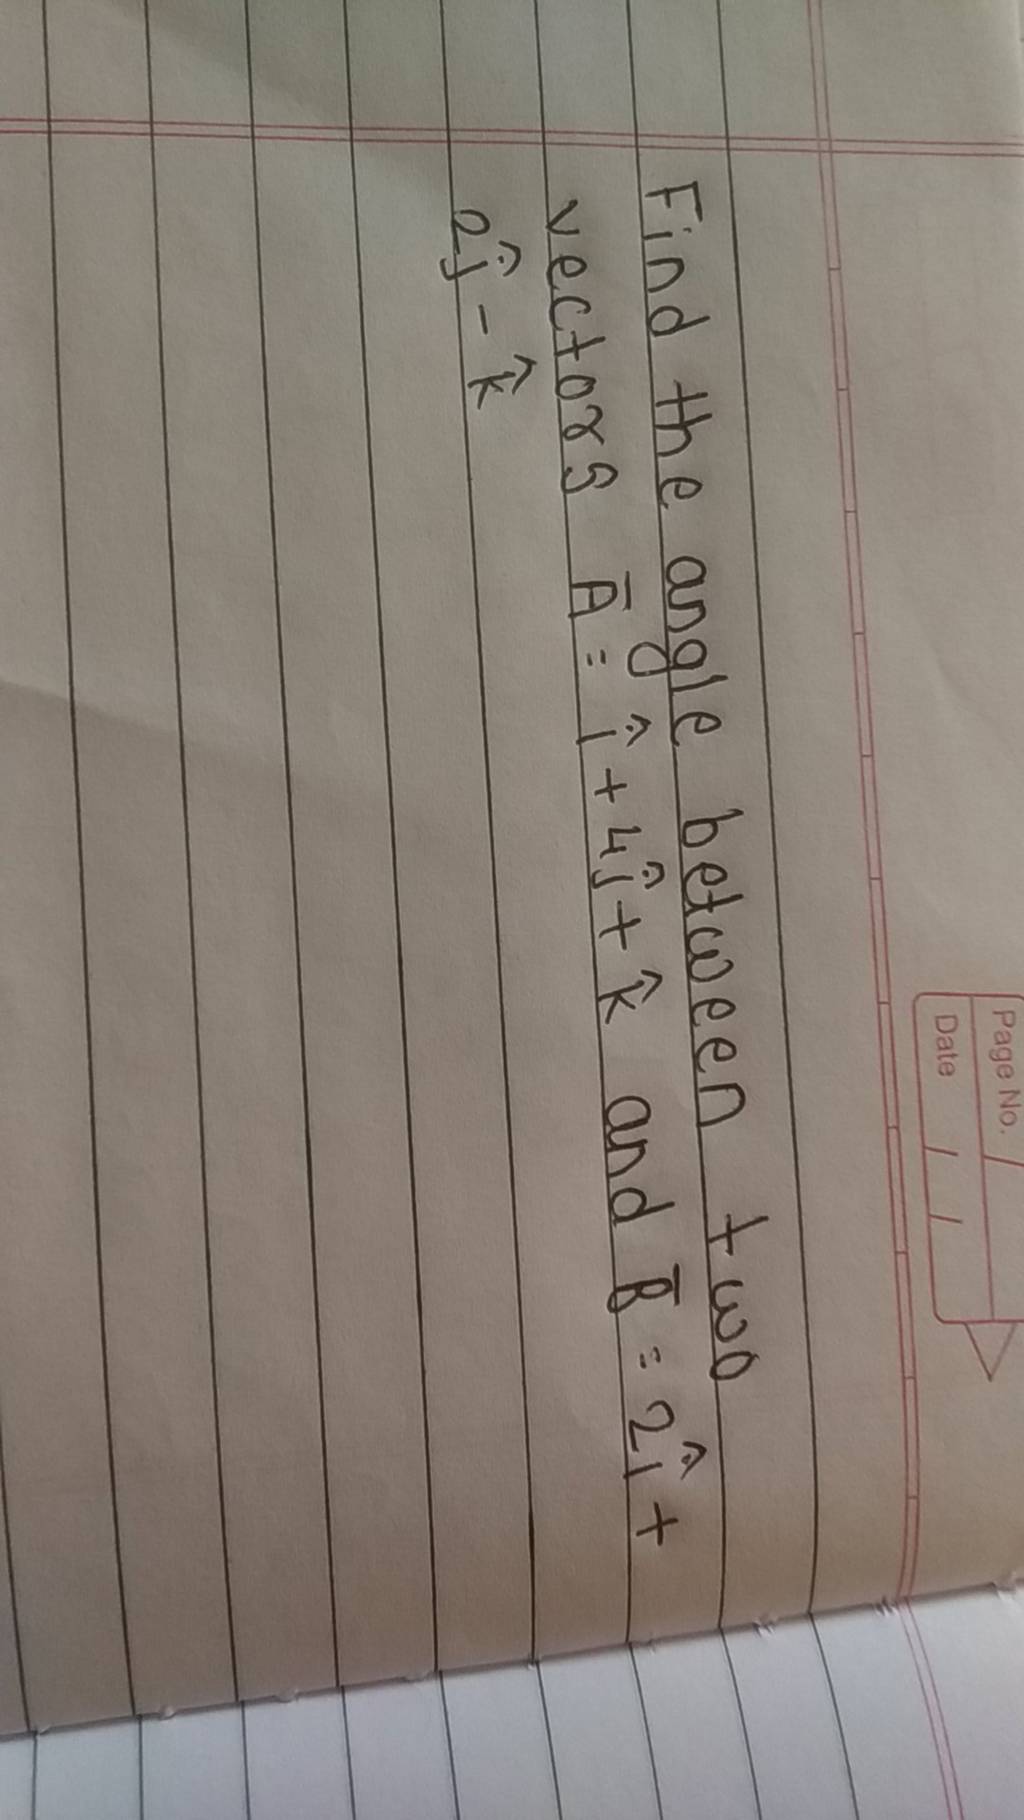 Page No.
Date / /
Find the angle between two
vectors A̅ = î + 4ĵ + k̂ and B̅ = 2î +
2ĵ - k̂